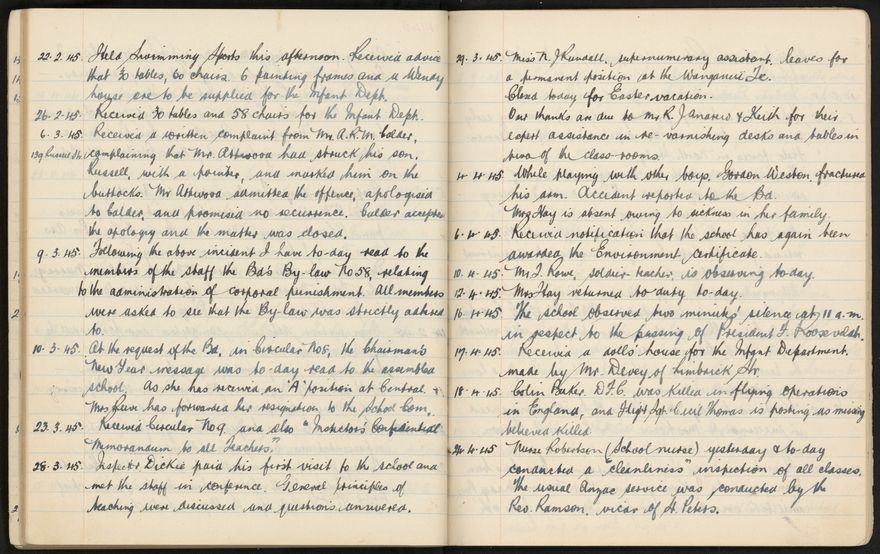 22.2.45. Held Swimming Sports this afternoon. Received advice
that 30 tables, 60 chairs, 6 painting frames and a Wendy
house are to be supplied for the Infant Dept.
26.2.45. Received 30 tables and 58 chairs for the Infant Dept.
6.3.45. Received a written complaint from Mr. A.K.M. Calder,
complaining that Mr. Attwood had struck his son,
Russell, with a pointer, and marked him on the
buttocks. Mr Attwood admitted the offence, apologised
to Calder, and promised no recurrence. Calder accepted
the apology and the matter was closed.
9.3.45. Following the above incident I have to-day read to the
members of the staff the Bd's By-law No 58, relating
to the administration of corporal punishment. All members
were asked to see that the By-law was strictly adhered
to.
10.3.45. At the request of the Bd, in Circular No 8, the Chairman's
New Year message was to-day read to the assembled
school. As she has received an 'A' position at Central
Mrs has forwarded her resignation to the School Com.
23.3.45. Received Circular No 9 and also "Inspectors' Confidential
Memorandum to all Teachers."
28.3.45. Inspector Dickie paid his first visit to the school and
met the staff in conference. General principles of
teaching were discussed and questions answered.
29.3.45. Miss N. J. Kendall, supernumerary assistant, leaves for
a permanent position at the Wanganui Ie.
Closed today for Easter vacation.
Our thanks are due to Mr. K. & Keith for their
expert assistance in re-varnishing desks and tables in
two of the class-rooms.
4.4.45. While playing with other boys, Gordon Weston, fractured
his arm. Accident reported to the Bd.
Mrs Hay is absent owing to sickness in her family.
6.4.45. Received notification that the school has again been
awarded the Environment certificate.
10.4.45. Mr. I. Rowe, soldier teacher, is observing to-day.
12.4.45. Mrs Hay returned to duty to-day.
16.4.45. The school observed two minutes' silence at 11 a.m.
in respect to the passing of President F. Roosevelt.
17.4.45. Received a doll's house for the Infant Department.
made by Mr. Devey of Limbrick St.
18.4.45. Colin Baker D.F.C. was killed in flying operations
in England, and Flight Sgt. Cecil Thomas is posting as missing
believed killed.
24.4.45. Nurse Robertson (School nurse) yesterday & to-day
conducted a "cleanliness" inspection of all classes.
The usual Anzac service was conducted by the
Rev. Ramson, vicar of St. Peters.